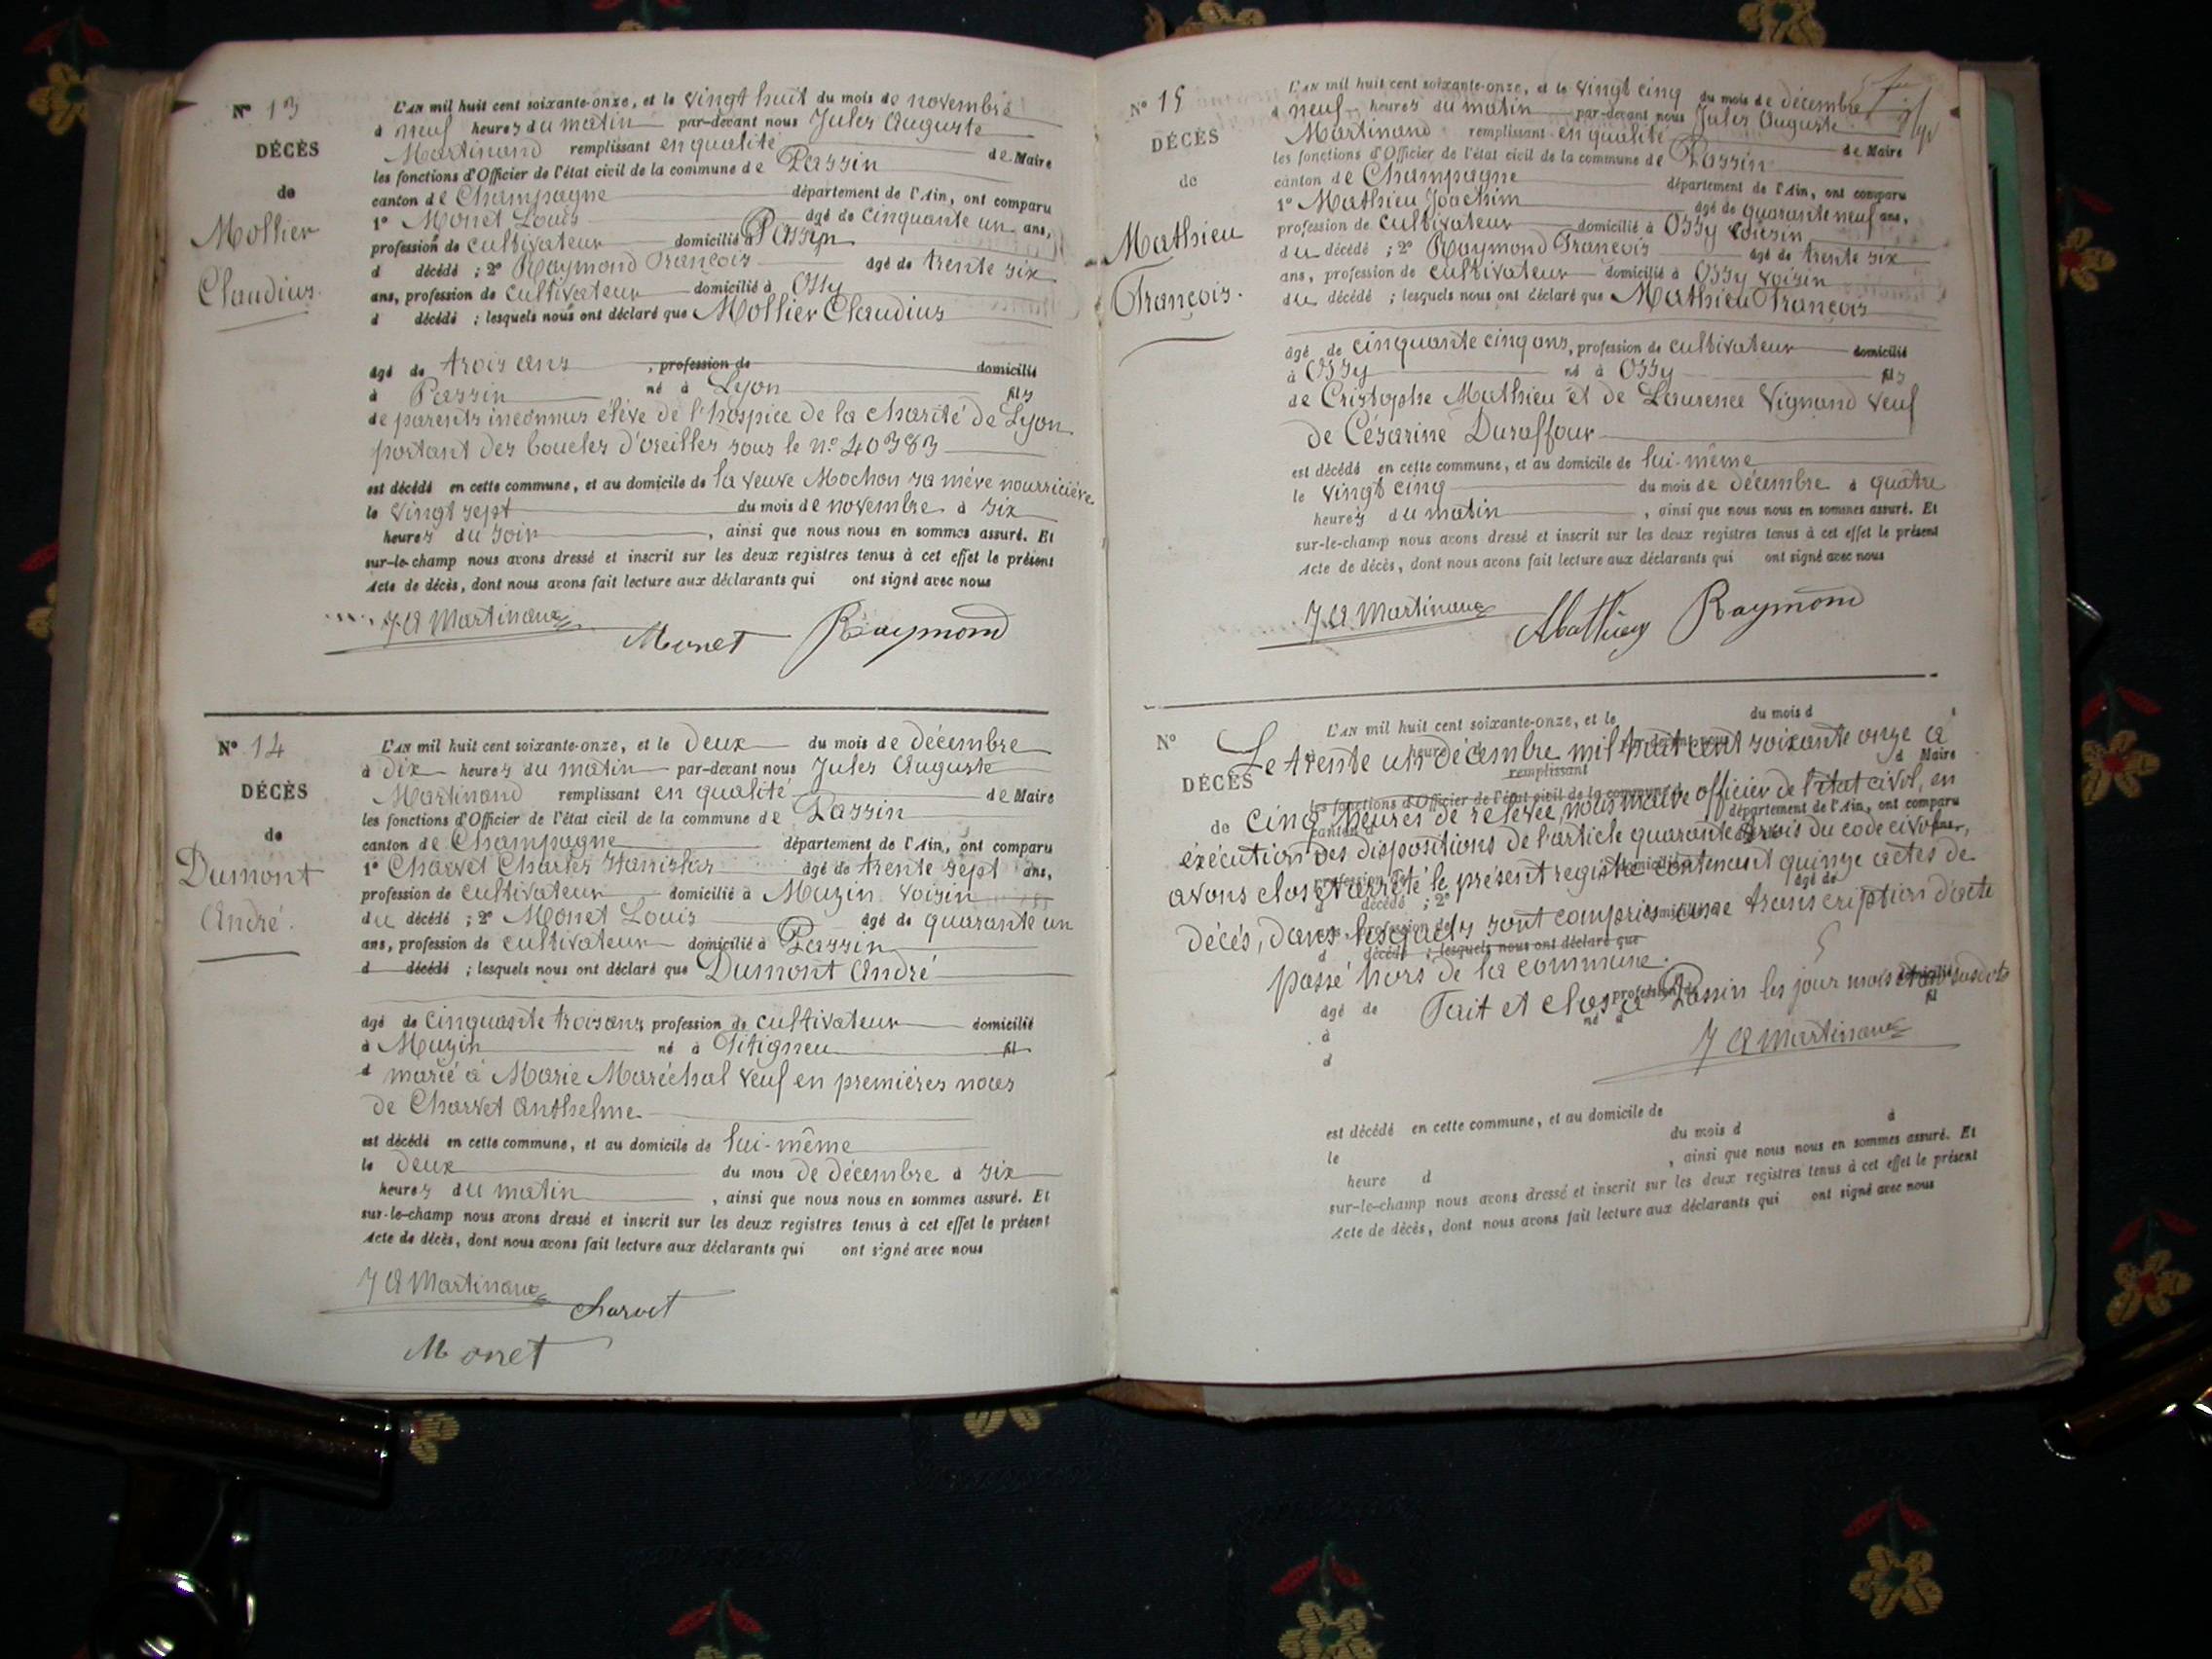 N° 13
DÉCÈS
de
Mollier
Claudius.
L'AN mil huit cent soixante-onze, et le vingt huit du mois de novembre
à neuf heures du matin par-devant nous Jules Auguste
Martinand remplissant en qualité de Maire
les fonctions d'Officier de l'état civil de la commune de Passin
canton de Champagne département de l'Ain, ont comparu
1° Monet Louis âgé de cinquante un ans,
profession de cultivateur domicilié à Passin
d décédé ; 2° Raymond François âgé de trente six
ans, profession de cultivateur domicilié à Ossy
d décédé ; lesquels nous ont déclaré que Mollier Claudius
âgé de trois ans , profession de domicilié
à Passin né à Lyon fils
de parents inconnus élève de l'hospice de la charité de Lyon
portant des boucles d'oreilles sous le n° 40383
est décédé en cette commune, et au domicile de la veuve Mochon sa mère nourricière
le vingt sept du mois de novembre à six
heures du soir , ainsi que nous nous en sommes assuré. Et
sur-le-champ nous avons dressé et inscrit sur les deux registres tenus à cet effet le présent
Acte de décès, dont nous avons fait lecture aux déclarants qui ont signé avec nous
J A Martinand
Monet Raymond
N° 14
DÉCÈS
de
Dumont
André.
L'AN mil huit cent soixante-onze, et le deux du mois de décembre
à dix heures du matin par-devant nous Jules Auguste
Martinand remplissant en qualité de Maire
les fonctions d'Officier de l'état civil de la commune de Passin
canton de Champagne département de l'Ain, ont comparu
1° Charvet Charles Stanislas âgé de trente sept ans,
profession de cultivateur domicilié à Muzin voisin
du décédé ; 2° Monet Louis âgé de quarante un
ans, profession de cultivateur domicilié à Passin
d décédé ; lesquels nous ont déclaré que Dumont André
âgé de cinquante trois ans profession de cultivateur domicilié
à Muzin né à Vitigneu fil
d marié à Marie Maréchal veuf en premières noces
de Charvet Anthelme
est décédé en cette commune, et au domicile de lui-même
le deux du mois de décembre à six
heures du matin , ainsi que nous nous en sommes assuré. Et
sur-le-champ nous avons dressé et inscrit sur les deux registres tenus à cet effet le présent
Acte de décès, dont nous avons fait lecture aux déclarants qui ont signé avec nous
J A Martinand
Charvet
Monet
N° 15
DÉCÈS
de
Mathieu
François.
L'AN mil huit cent soixante-onze, et le vingt cinq du mois de décembre
à neuf heures du matin par-devant nous Jules Auguste
Martinand remplissant en qualité de Maire
les fonctions d'Officier de l'état civil de la commune de Passin
canton de Champagne département de l'Ain, ont comparu
1° Mathieu Joachim âgé de quarante neuf ans,
profession de cultivateur domicilié à Ossy cousin
du décédé ; 2° Raymond François âgé de trente six
ans, profession de cultivateur domicilié à Ossy voisin
du décédé ; lesquels nous ont déclaré que Mathieu François
âgé de cinquante cinq ans, profession de cultivateur domicilié
à Ossy né à Ossy fils
de Cristophe Mathieu et de Laurence Vignand veuf
de Césarine Duraffour
est décédé en cette commune, et au domicile de lui-même
le vingt cinq du mois de décembre à quatre
heures du matin , ainsi que nous nous en sommes assuré. Et
sur-le-champ nous avons dressé et inscrit sur les deux registres tenus à cet effet le présent
Acte de décès, dont nous avons fait lecture aux déclarants qui ont signé avec nous
J A Martinand
Mathieu Raymond
N°
DÉCÈS
de
L'AN mil huit cent soixante-onze, et le du mois d
Le trente un décembre mil huit cent soixante onze à
heure d
remplissant d Maire
les fonctions d'Officier de l'état civil de la commune d
cinq heures de relevée, nous maire officier de l'état civil, en
canton d département de l'Ain, ont comparu
exécution des dispositions de l'article quarante trois du code civil,
ans,
profession de domicilié à
avons clos et arrêté le présent registre contenant quinze actes de
d décédé ; 2° âgé de
décès, dans lesquels sont compris une transcription d'acte
ans, profession de domicilié à
d décédé ; lesquels nous ont déclaré que
passé hors de la commune.
âgé de profession de domicilié
Fait et clos à Passin les jour mois et an susdits
à né à fil
d
J A Martinand
est décédé en cette commune, et au domicile de
le du mois d à
heure d , ainsi que nous nous en sommes assuré. Et
sur-le-champ nous avons dressé et inscrit sur les deux registres tenus à cet effet le présent
Acte de décès, dont nous avons fait lecture aux déclarants qui ont signé avec nous